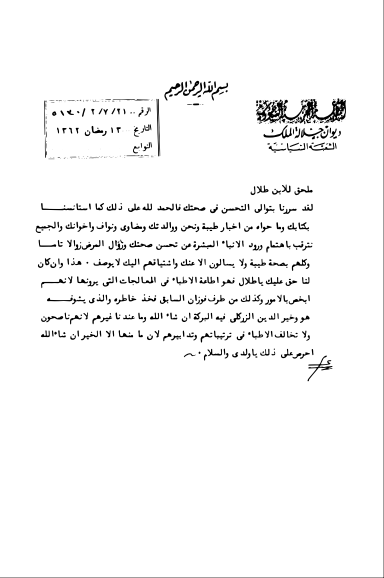 بسم الله الرحمن الرحيم
المملكة العربية السعودية
ديوان جلالة الملك
الشعبة السياسية
الرقم .. ٥١٣٠/٢/٧/٢١
التاريخ ١٣ رمضان ١٣٦٢
التوابع
ملحق للابن طلال
لقد سررنا بتوالى التحسن فى صحتك فالحمد لله على ذلك كما استانسنـــا
بكتابك وما حواه من اخبار طيبة ونحن ووالدتك ومضاوى ونواف واخوانك والجميع
نترقب باهتمام ورود الانباء المبشرة عن تحسن صحتك وزوال المرض زوالا تامـا
وكلهم بصحة طيبة ولا يسالون الا عنك واشتياقهم اليك لا يوصف ٠ هذا وان كان
لنا حق عليك ياطلال فهو اطاعة الاطباء فى المعالجات التى يرونها لانهــم
ابخص بالامور وكذلك من طرف فوزان السابق فخذ خاطره والذى يشوفــه
هو وخير الدين الزركلى فيه البركة ان شاء الله وما عندنا غيرهم لانهم ناصحون
ولا تخالف الاطباء فى ترتيباتهم وتدابيرهم لان ما منها الا الخير ان شاء الله
احرص على ذلك ياولدى والسلام